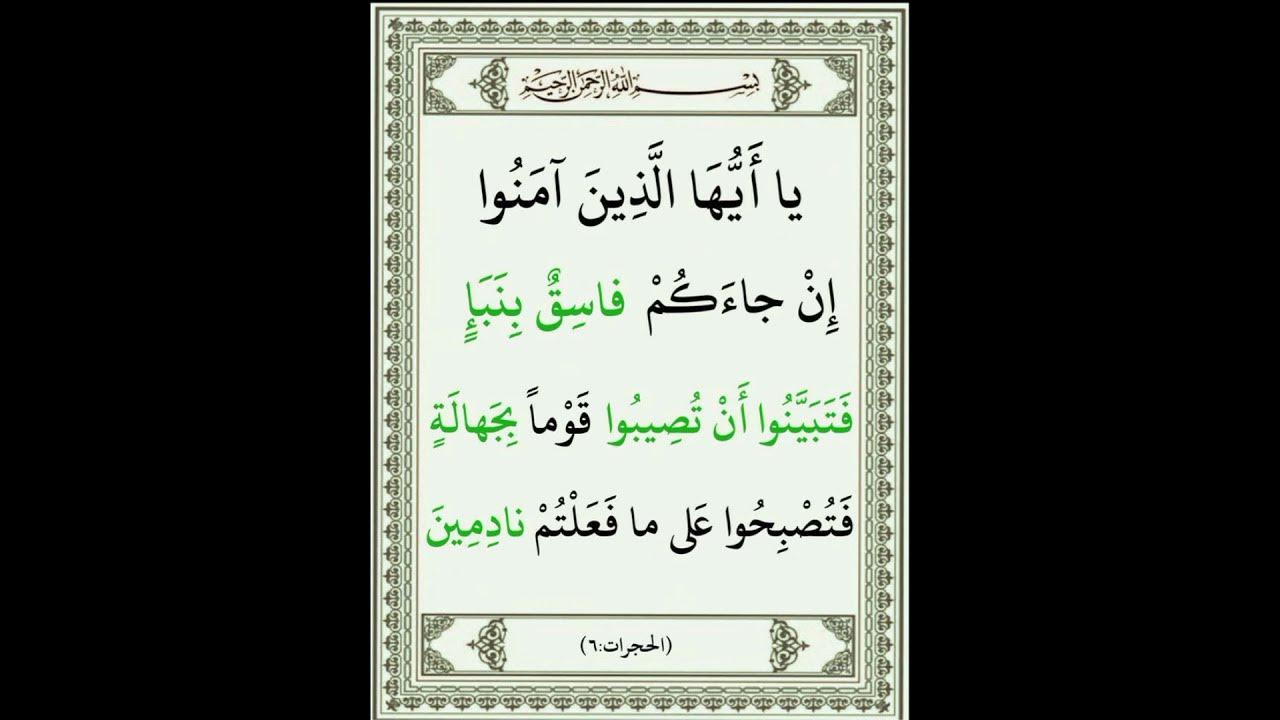 بِسْمِ اللهِ الرَّحْمٰنِ الرَّحِيْمِ
يا أَيُّهَا الَّذِينَ آمَنُوا
إِنْ جاءَكُمْ فاسِقٌ بِنَبَإٍ
فَتَبَيَّنُوا أَنْ تُصِيبُوا قَوْماً بِجَهالَةٍ
فَتُصْبِحُوا عَلى ما فَعَلْتُمْ نادِمِينَ
(الحجرات:٦)